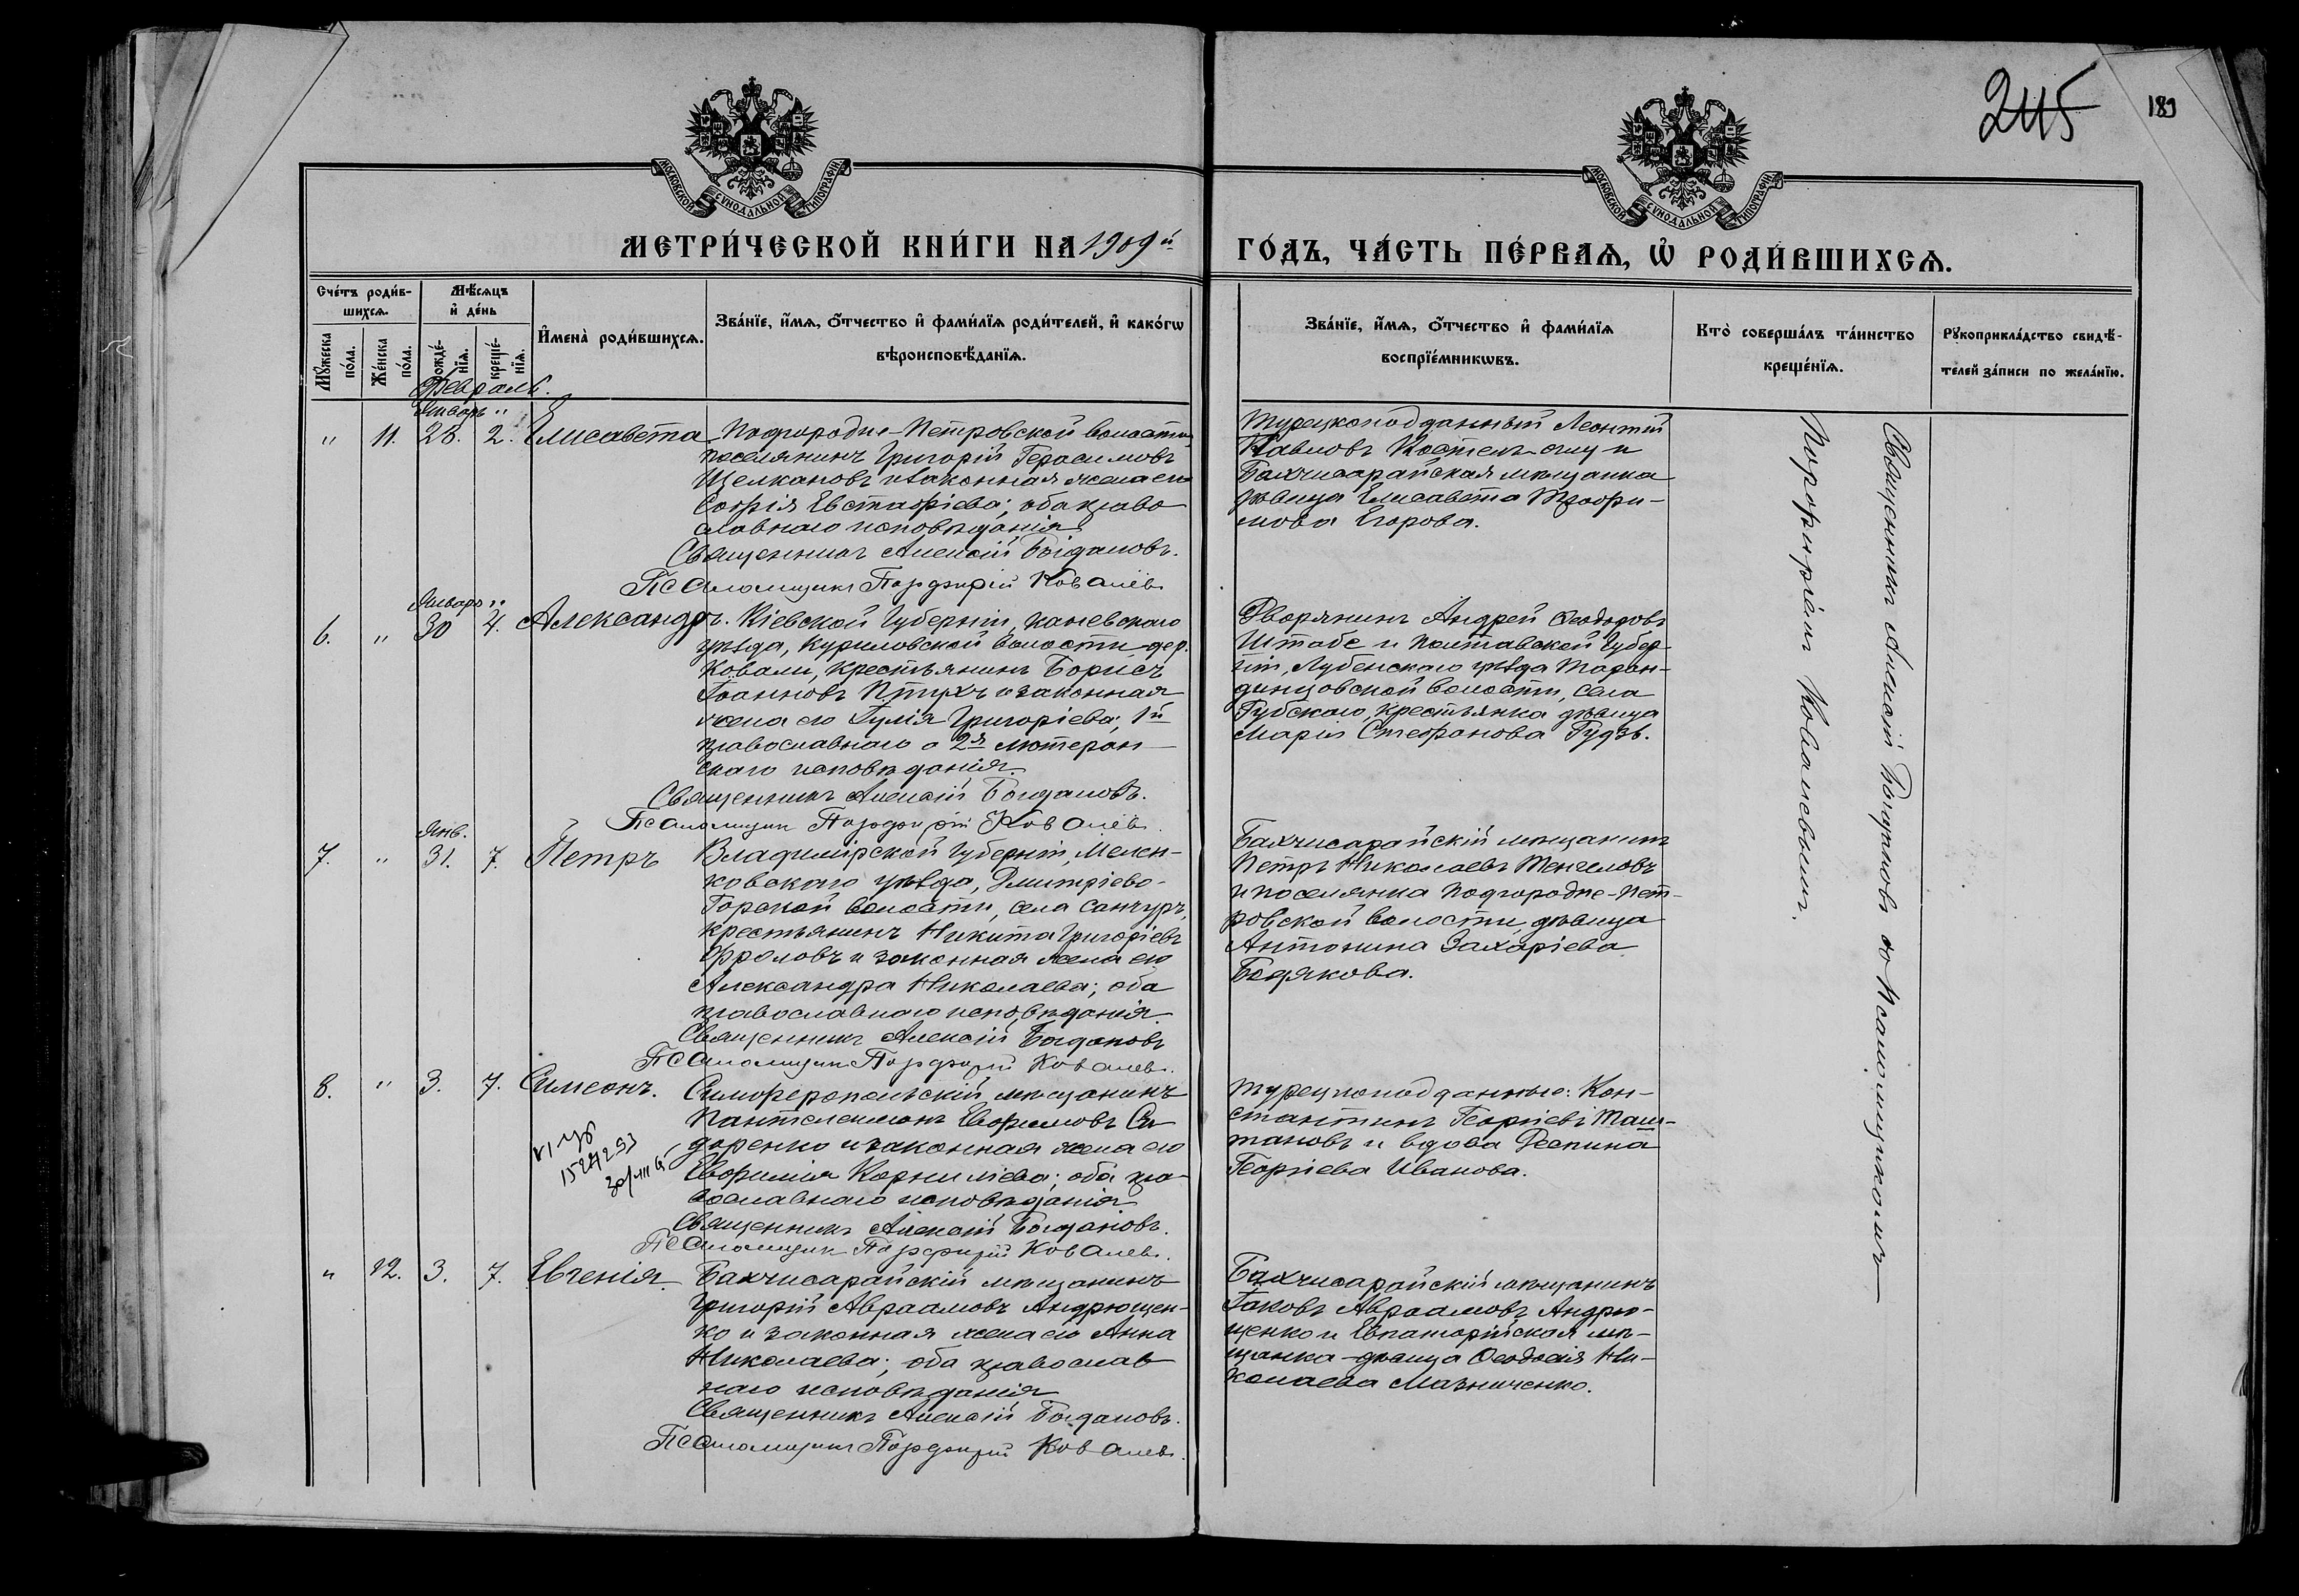 245
189
МОСКОВСКОЙ СѴНОДАЛЬНОЙ ТИПОГРАФІИ
МОСКОВСКОЙ СѴНОДАЛЬНОЙ ТИПОГРАФІИ
МЕТРИ́ЧЕСКОЙ КНИ́ГИ НА 1909й
ГО́ДЪ, ЧА́СТЬ ПЕ́РВАѦ, Ѡ҆ РОДИ́ВШИХСѦ.
Сче́тъ роди́в-
шихсѧ.
Мꙋжеска по́ла.
Же́нска по́ла.
Мѣ́сѧцъ
и҆ де́нь
рожде́-
нїѧ.
креще́-
нїѧ.
И҆мена̀ роди́вшихсѧ.
Зва́нїе, и҆́мѧ, ѻ҆́тчество и҆ фами́лїѧ роди́телей, и҆ како́гѡ
вѣроисповѣ́данїѧ.
Зва́нїе, и҆́мѧ, ѻ҆́тчество и҆ фами́лїѧ
воспрїе́мникѡвъ.
Кто̀ соверша́лъ та́инство
креще́нїѧ.
Рꙋкоприкла́дство свидѣ́-
телей за́писи по жела́нїю.
Февраль.
Январь "
" 11. 28. 2. Елисавета
Подгородне-Петровской волости
поселянинъ Григорій Герасимовъ
Щелкановъ и законная жена его
Софія Евстафіева; оба право
славнаго исповѣданія
Священникъ Алексій Богдановъ.
Псаломщикъ Порфирій Ковалевъ
Турецкоподданный Леонтій
Павловъ
Бахчисарайская мѣщанка
дѣвица Елисавета Трофи-
мова Егорова.
Январь "
6. " 30 4. Александръ.
Кіевской Губерніи, Каневскаго
уѣзда, Куриловской волости дер.
Ковали, крестьянинъ Борисъ
Іоанновъ Птухъ и законная
жена его Юлія Григоріева; 1й
православнаго а 2я лютеран-
скаго исповѣданія.
Священникъ Алексій Богдановъ.
Псаломщикъ Порфирій Ковалевъ.
Дворянинъ Андрей Ѳеодоровъ
Штабе и Полтавской Губер-
ніи, Лубенскаго уѣзда Таран-
динцовской волости, села
Губскаго, крестьянка дѣвица
Марія Стефанова Гудзь.
Янв.
7. " 31. 7. Петръ
Владимірской Губерніи, Мелен-
ковскаго уѣзда, Дмитріево-
Горской волости, села Санчуръ,
крестьянинъ Никита Григоріевъ
Фроловъ и законная жена его
Александра Николаева; оба
православнаго исповѣданія.
Священникъ Алексій Богдановъ
Псаломщикъ Порфирій Ковалевъ.
Бахчисарайскій мѣщанинъ
Петръ Николаевъ Тенчеловъ
и поселянка Подгородне-Пет-
ровской волости, дѣвица
Антонина Захаріева
Бодякова.
8. " 3. 7. Симеонъ.
Симферопольскій мѣщанинъ
Пантелеимонъ Евфимовъ Си
доренко и законная жена его
Евфимія Корниліева; оба пра-
вославнаго исповѣданія
Священникъ Алексій Богдановъ.
Псаломщикъ Порфирій Ковалевъ.
Турецкоподданные: Кон-
стантинъ Георгіевъ Таш-
тановъ и вдова Деспина
Георгіева Иванова.
" 12. 3. 7. Евгенія.
Бахчисарайскій мѣщанинъ
Григорій Авраамовъ Андрющен-
ко и законная жена его Анна
Николаева; оба православ
наго исповѣданія
Священникъ Алексій Богдановъ.
Псаломщикъ Порфирій Ковалевъ.
Бахчисарайскій мѣщанинъ
Іаковъ Авраамовъ Андрю-
щенко и Евпаторійская мѣ-
щанка-дѣвица Ѳеодосія Ни-
колаева Мазниченко.
Священникъ Алексій Богдановъ съ Псаломщикомъ
Порфиріемъ Ковалевымъ.